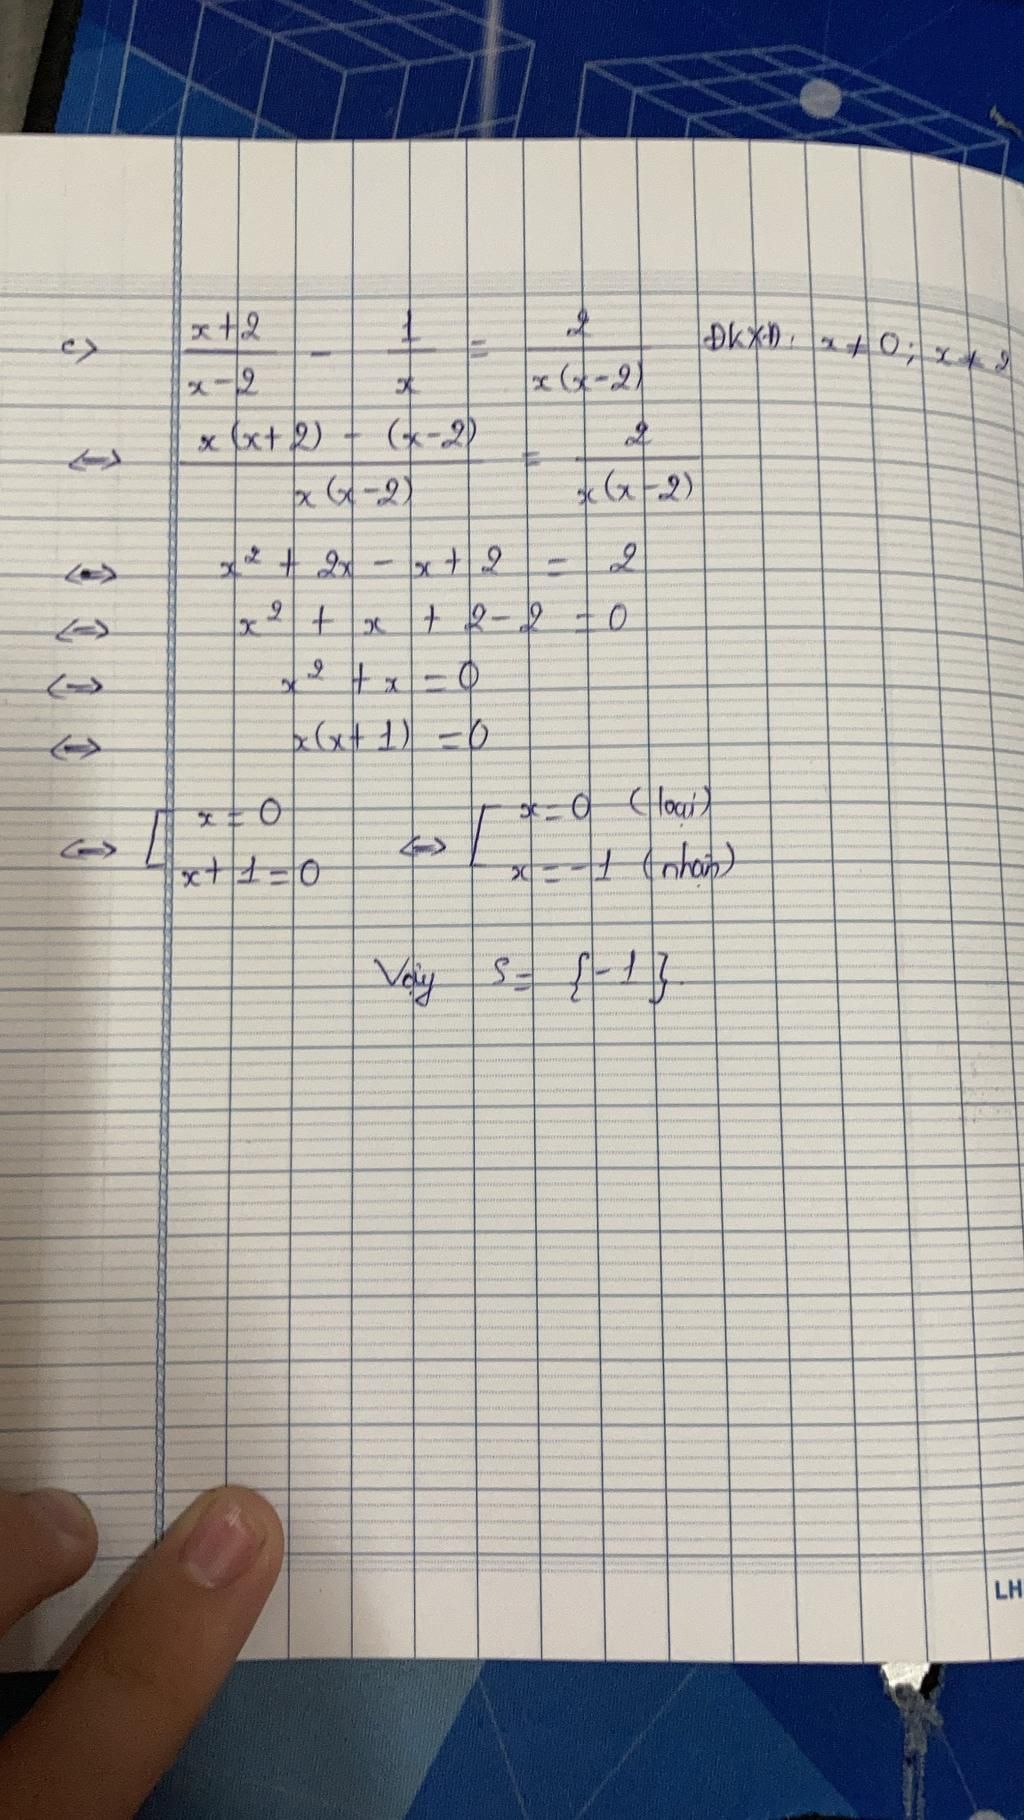 c> (x+2)/(x-2) - 1/x = 2/(x(x-2)) ĐKXĐ: x ≠ 0; x ≠ 2
<=> (x(x+2) - (x-2))/(x(x-2)) = 2/(x(x-2))
<=> x² + 2x - x + 2 = 2
<=> x² + x + 2 - 2 = 0
<=> x² + x = 0
<=> x(x+1) = 0
<=> [ x = 0 <=> [ x = 0 (loại)
x + 1 = 0 x = -1 (nhận)
Vậy S = {-1}.
LH